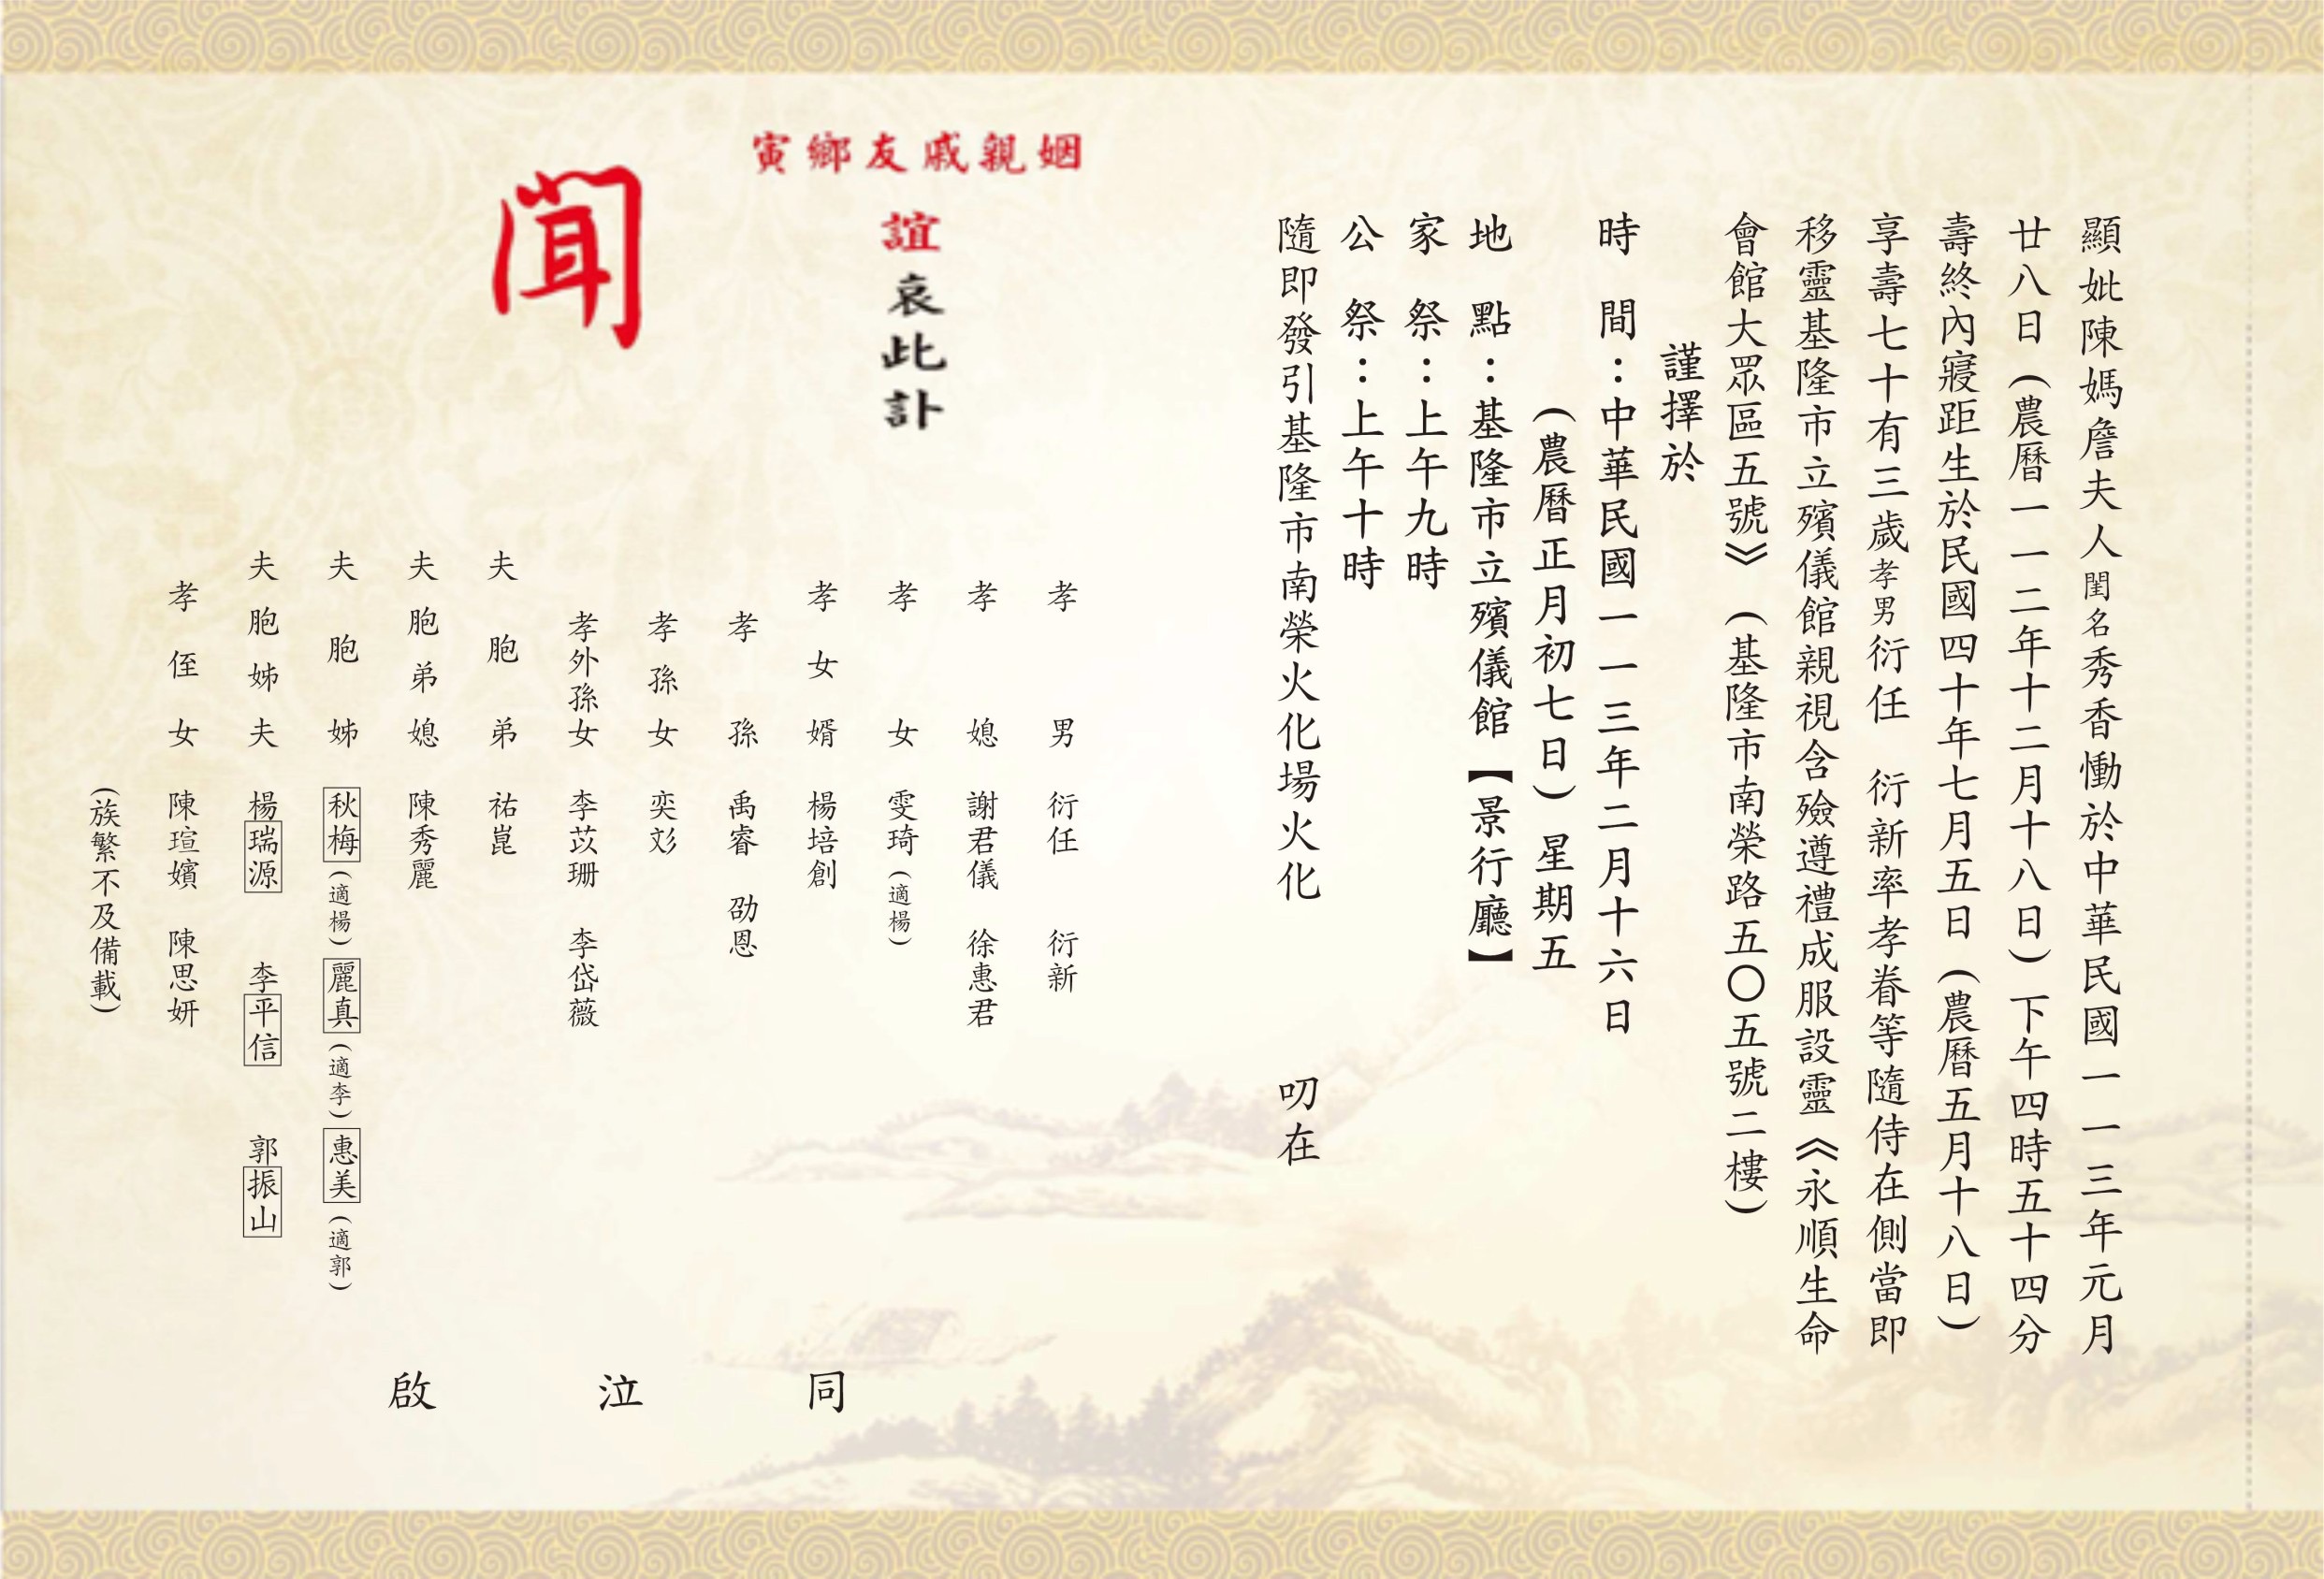 顯妣陳媽詹夫人閨名秀香慟於中華民國一一三年元月
廿八日(農曆一一二年十二月十八日)下午四時五十四分
壽終內寢距生於民國四十年七月五日(農曆五月十八日)
享壽七十有三歲孝男衍任 衍新率孝眷等隨侍在側當即
移靈基隆市立殯儀館親視含殮遵禮成服設靈《永順生命
會館大眾區五號》(基隆市南榮路五〇五號二樓)
謹擇於
時 間:中華民國一一三年二月十六日
(農曆正月初七日)星期五
地 點:基隆市立殯儀館【景行廳】
家 祭:上午九時
公 祭:上午十時
隨即發引基隆市南榮火化場火化 叨在
姻親戚友鄉寅
誼哀此訃
聞
孝男 衍任 衍新
孝媳 謝君儀 徐惠君
孝女 雯琦(適楊)
孝女婿 楊培創
孝孫 禹睿 劭恩
孝孫女 奕彣
孝外孫女 李苡珊 李岱薇
夫胞弟 祐崑
夫胞弟媳 陳秀麗
夫胞姊 秋梅(適楊) 麗真(適李) 惠美(適郭)
夫胞姊夫 楊瑞源 李平信 郭振山
孝侄女 陳瑄嬪 陳思妍
(族繁不及備載)
同泣啟